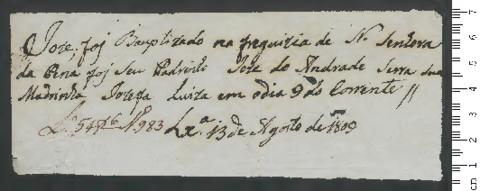 Joze, foj Bauptizado na freguizia de N. Senhora
da Pena foj Seu Padrinho Joze de Andrade Serra Sua
Madrinha Joze Luiza em o dia 9 do Corrente //
Lx.ª 13 de Agosto de 1800
7
6
5
4
3
2
1
cm